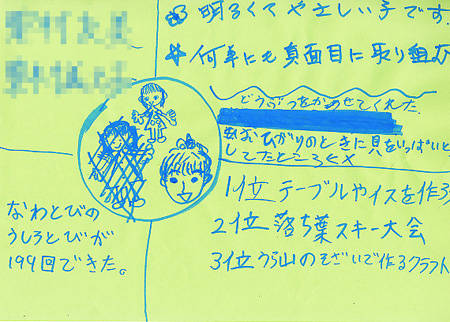 明るくてやさしい子です。
何事にも真面目に取り組む
どうぶつをかめせてくれた。
おひがりのときに貝をいっぱいと
してたところ
1位 テーブルやイスを作る
2位 落ち葉スキー大会
3位 うら山のそざいで作るクラフト
なわとびの
うしろとびが
199回できた。